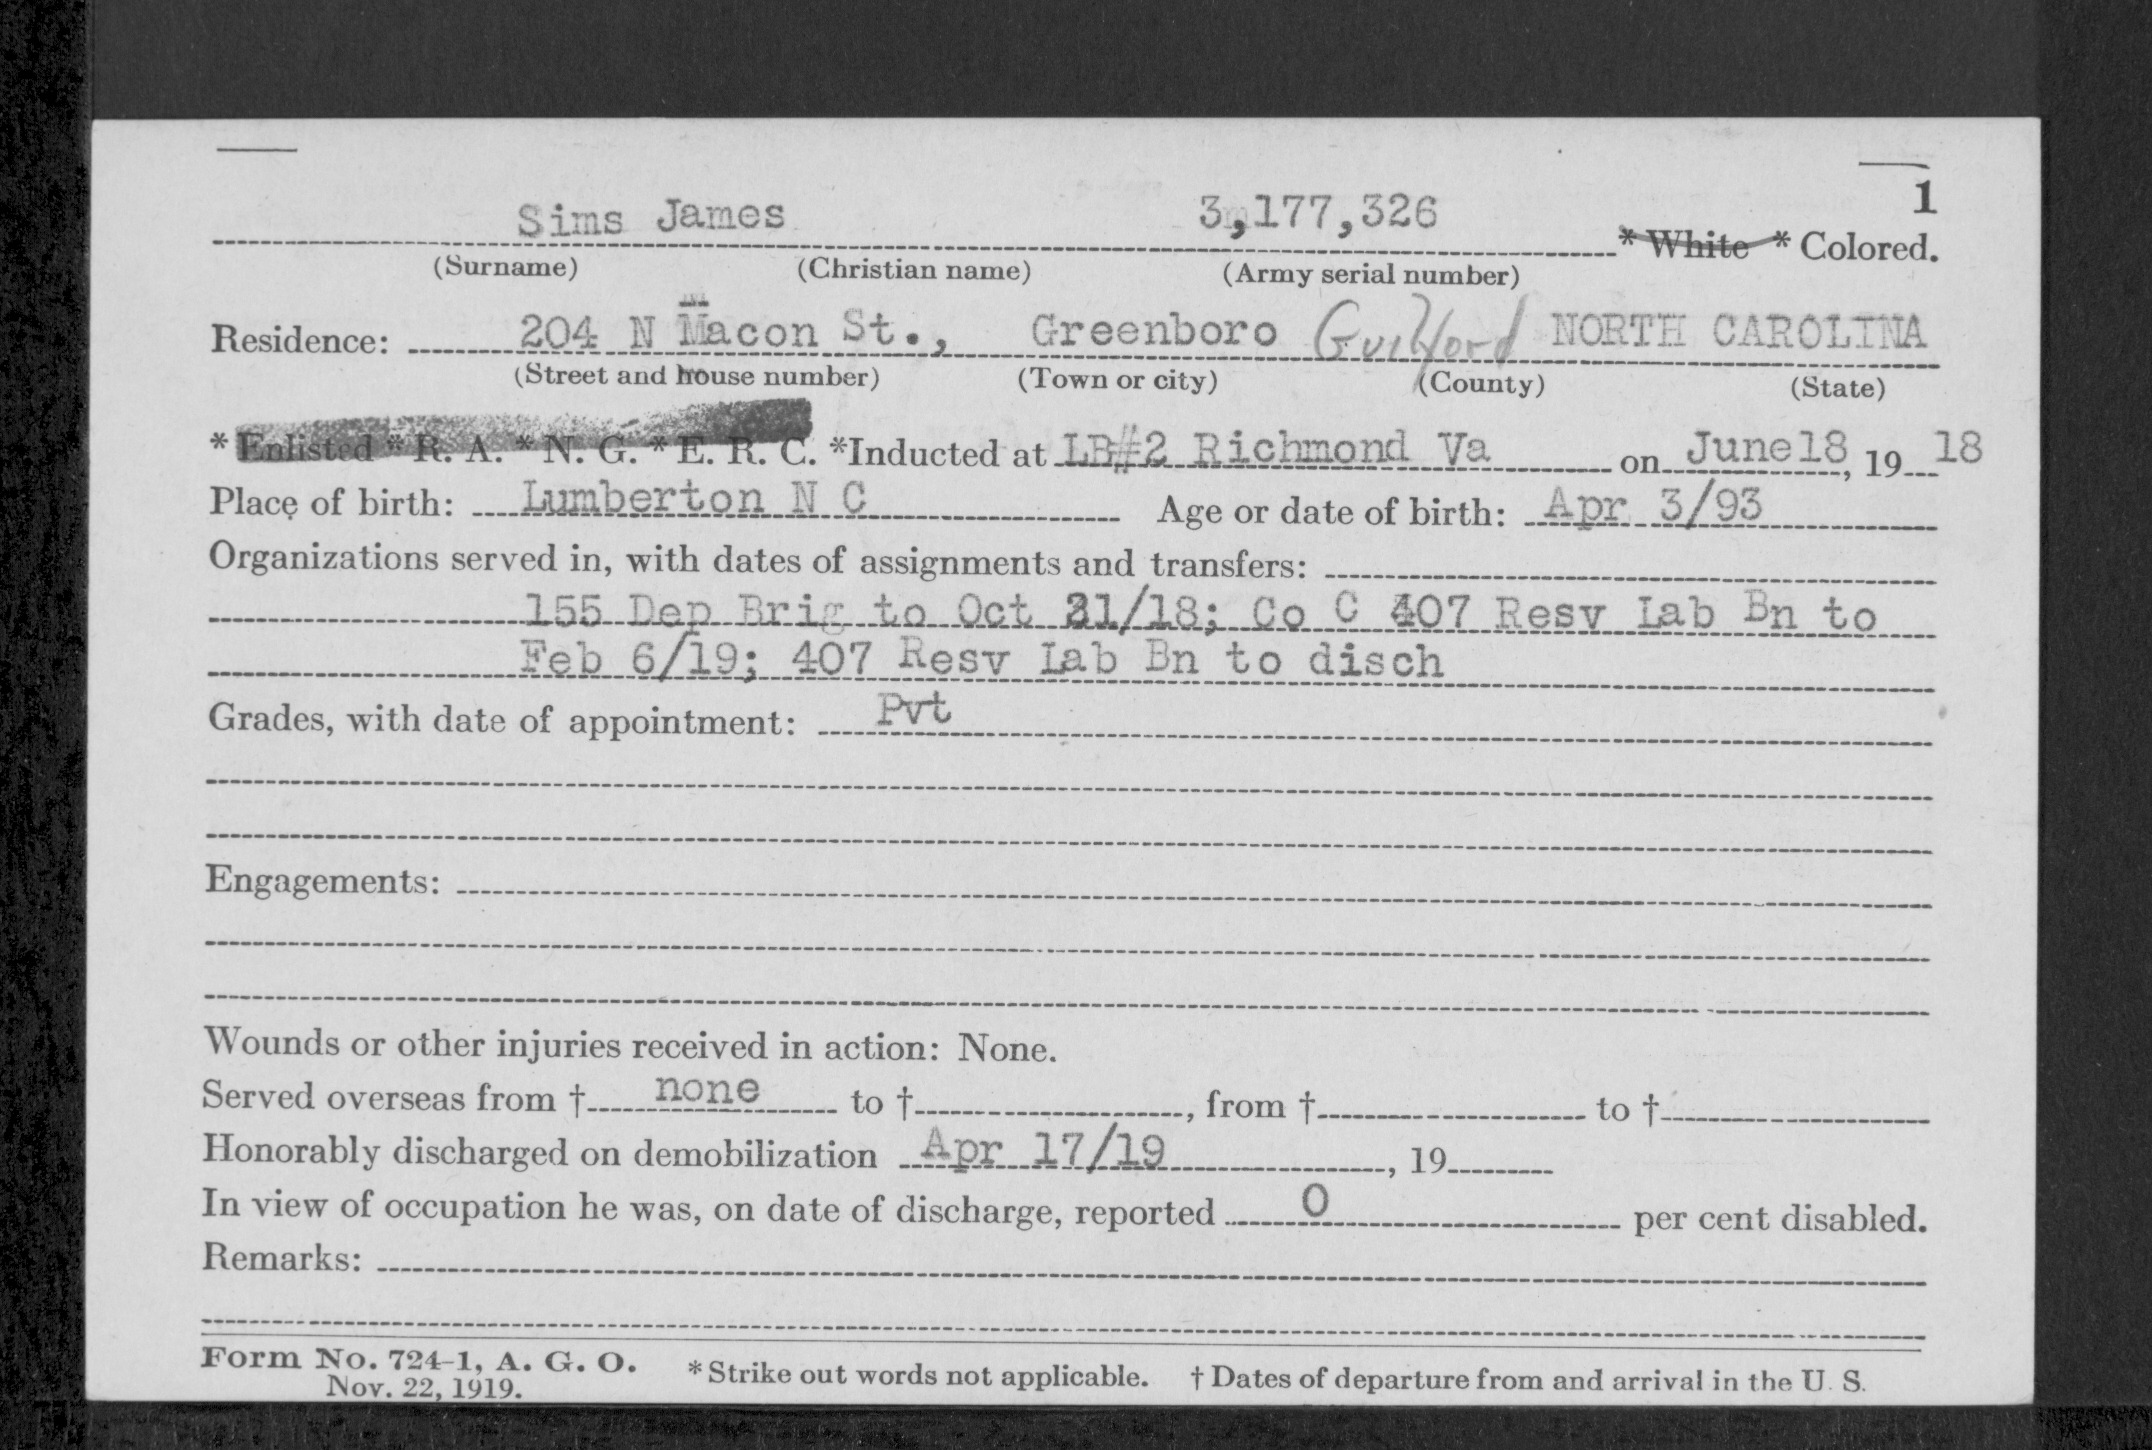 1
Sims James 3,177,326 * White * Colored.
(Surname) (Christian name) (Army serial number)
Residence: 204 N Macon St., Greenboro Guilford NORTH CAROLINA
(Street and house number) (Town or city) (County) (State)
* Enlisted * R. A. * N. G. * E. R. C. *Inducted at LB#2 Richmond Va on June 18, 19 18
Place of birth: Lumberton N C Age or date of birth: Apr 3/93
Organizations served in, with dates of assignments and transfers:
155 Dep Brig to Oct 31/18; Co C 407 Resv Lab Bn to
Feb 6/19; 407 Resv Lab Bn to disch
Grades, with date of appointment: Pvt
Engagements:
Wounds or other injuries received in action: None.
Served overseas from † none to †, from † to †
Honorably discharged on demobilization Apr 17/19, 19
In view of occupation he was, on date of discharge, reported 0 per cent disabled.
Remarks:
Form No. 724-1, A. G. O. * Strike out words not applicable. † Dates of departure from and arrival in the U. S.
Nov. 22, 1919.